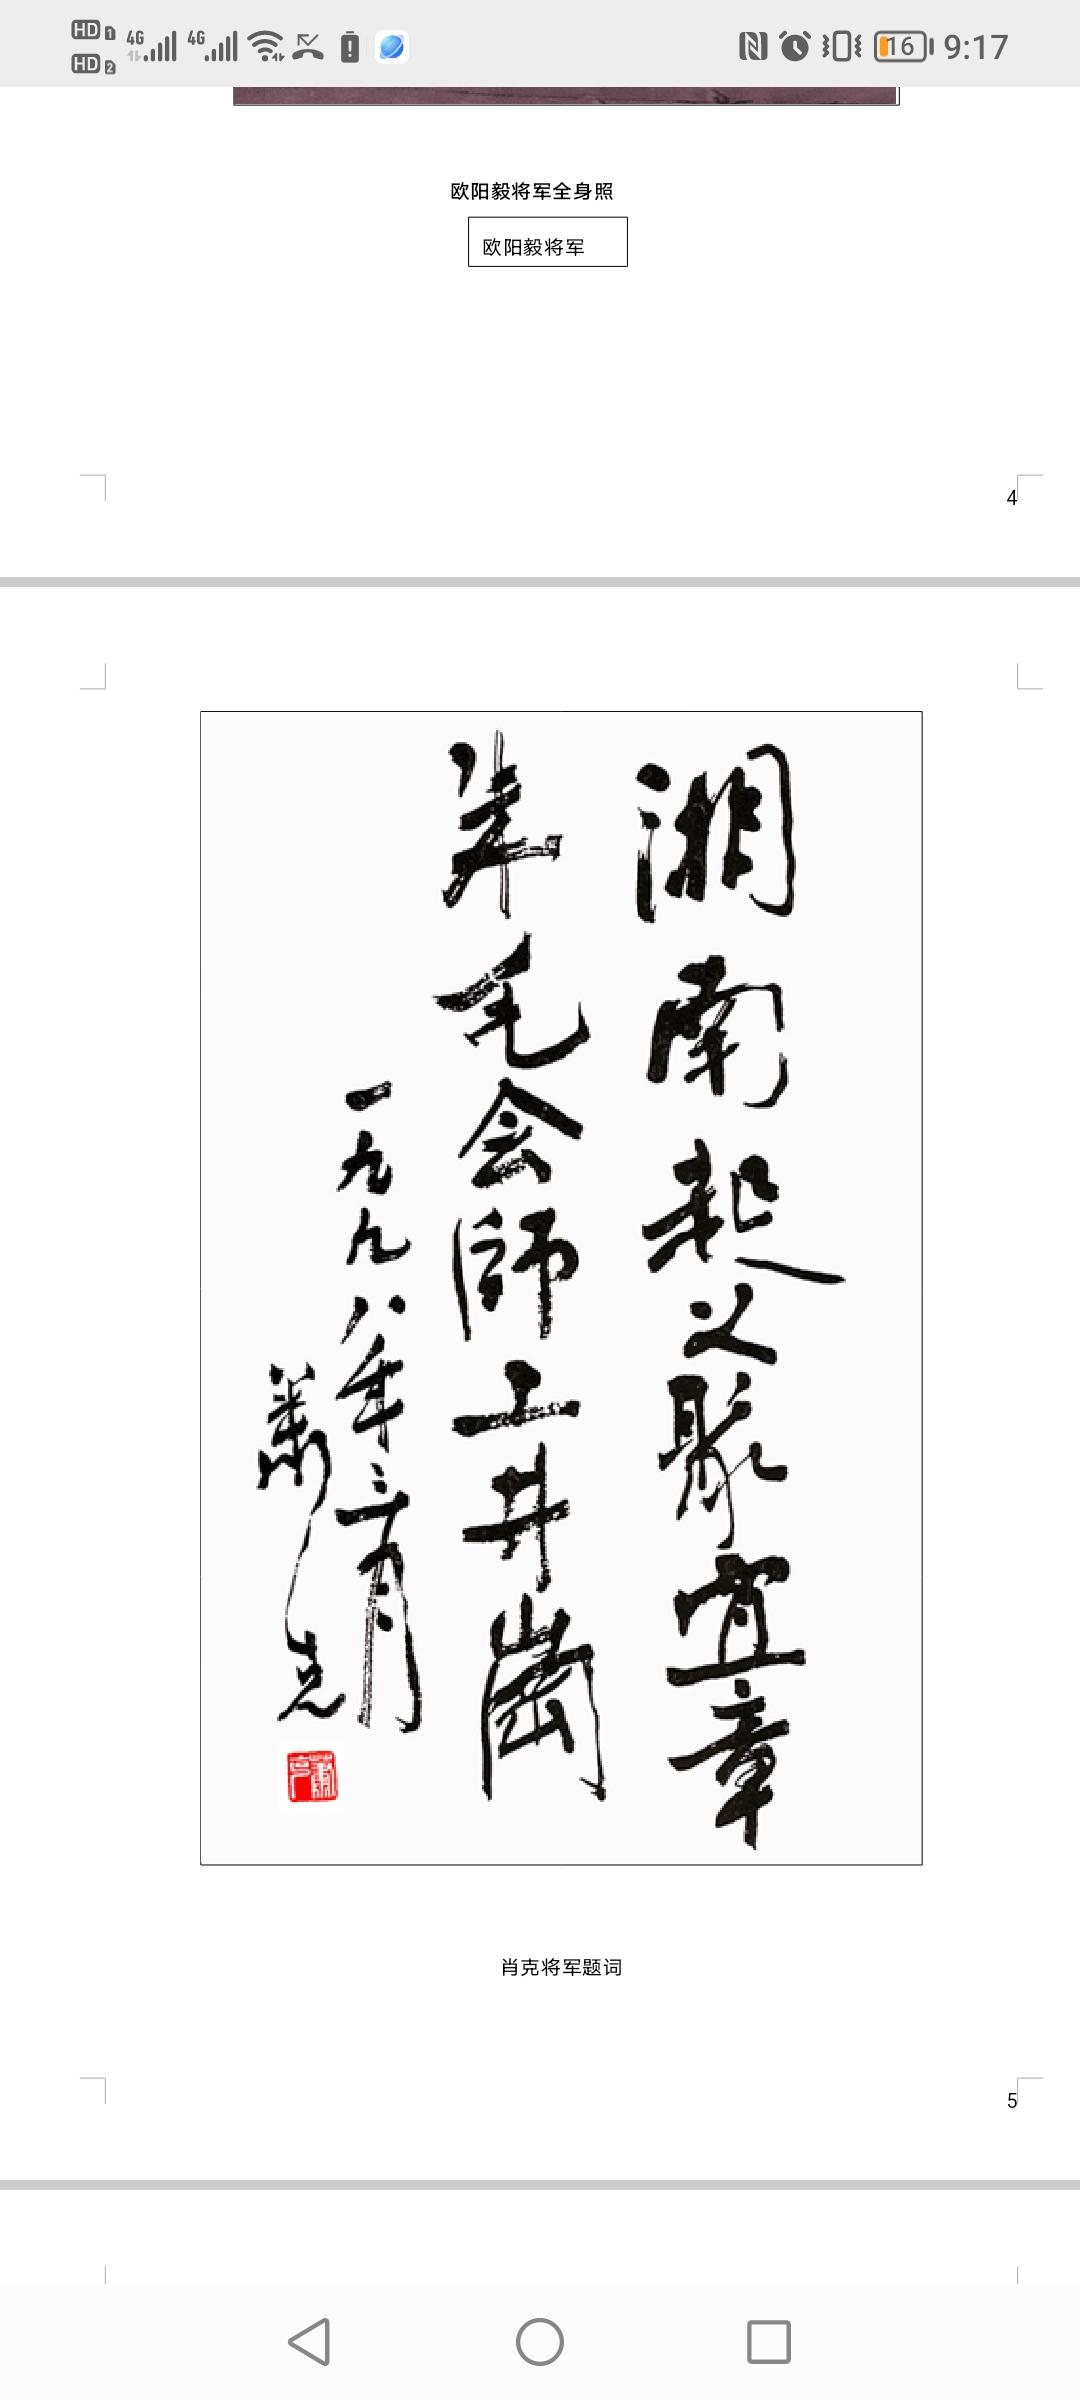 HD 1 4G 4G 16 9:17
HD 2
欧阳毅将军全身照
欧阳毅将军
4
湘南起义聚宜章
朱毛会師上井岗
一九九八年六月
萧克
肖克将军题词
5